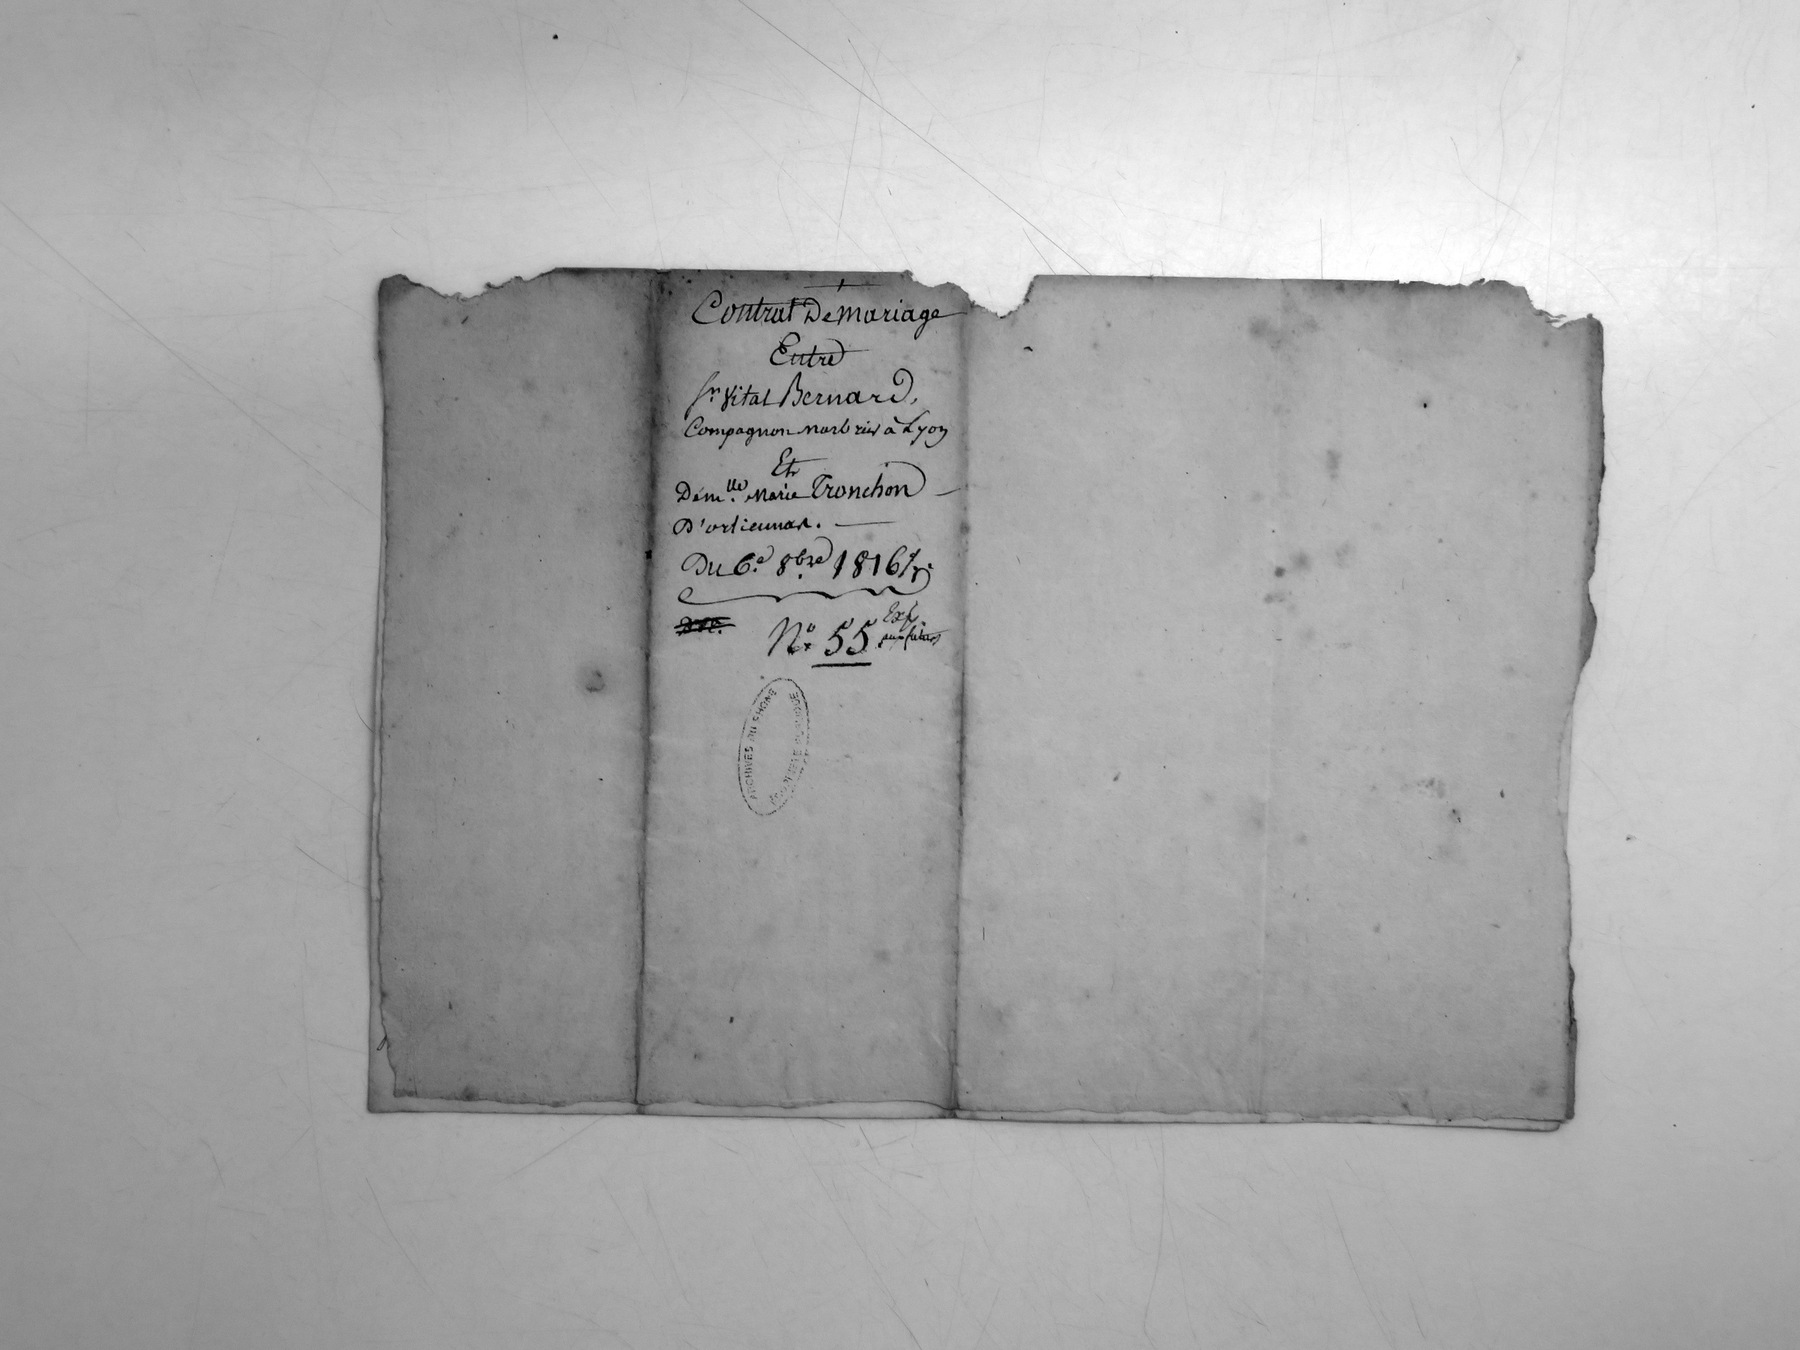 Contrat De Mariage
Entre
Sr. Vital Bernard,
Compagnon Marbrier à Lyon
Et
Demlle. Marie Tronchon
D'orlienas.
Du 6e. 8bre 1816
No. 55
Exp.
aux futurs
ARCHIVES DU RHONE